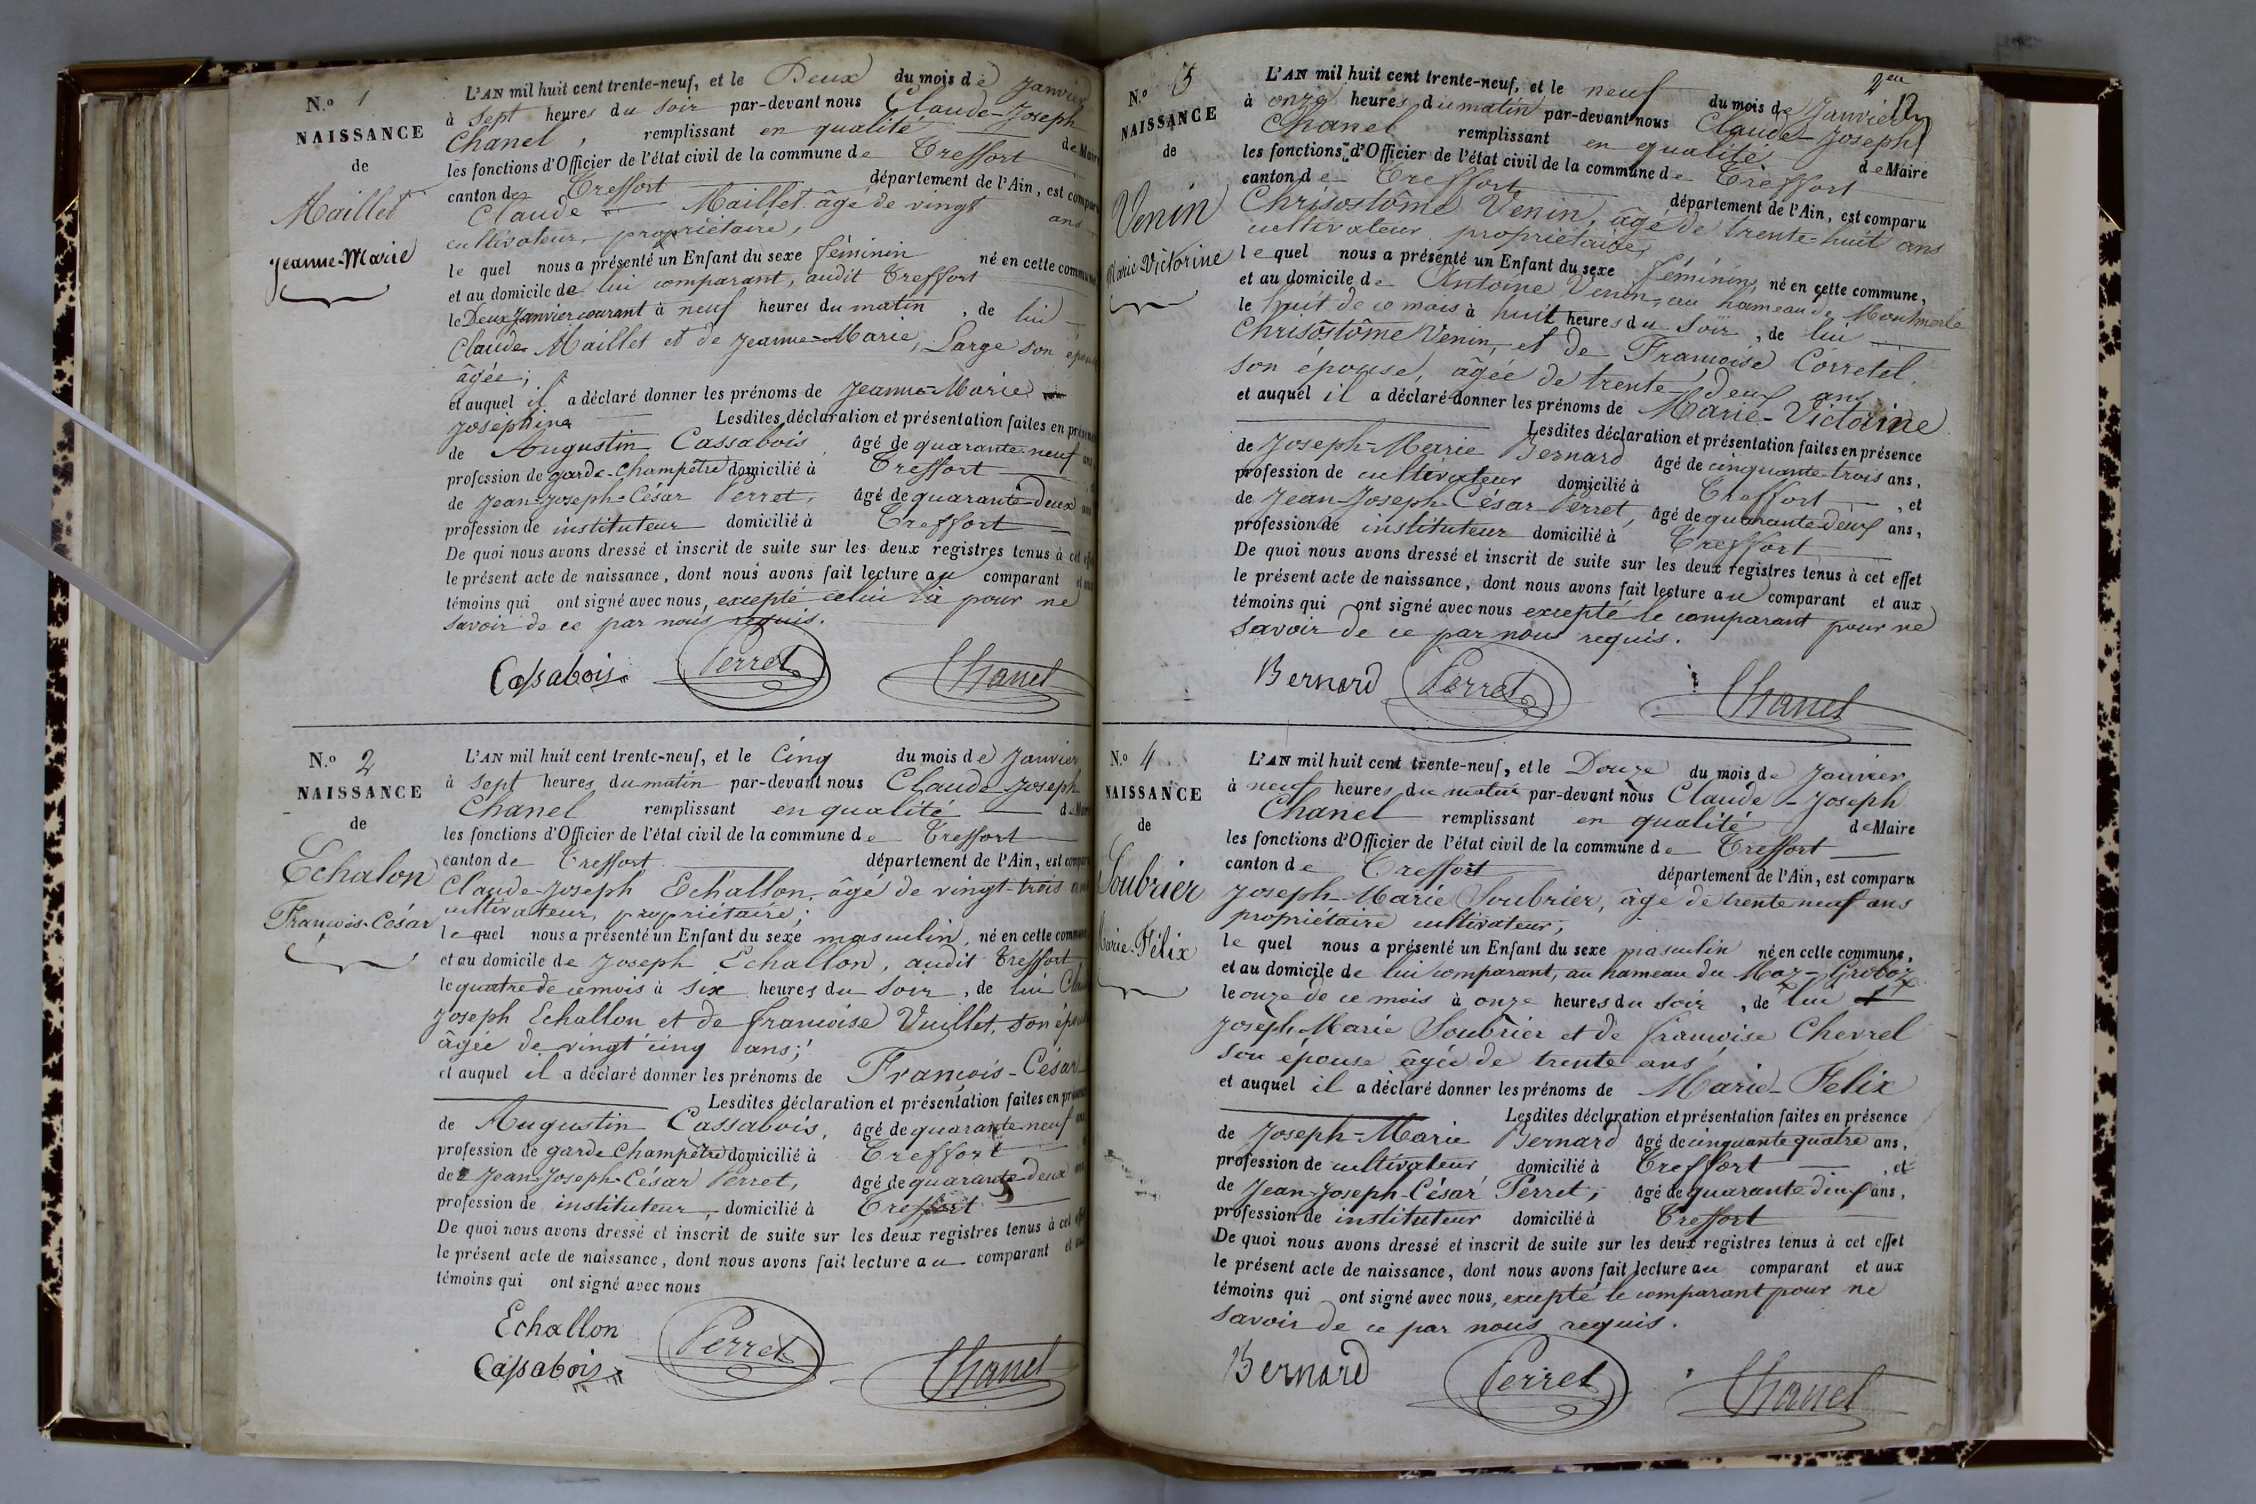 N.° 1
NAISSANCE
de
Maillet
Jeanne-Marie
L'AN mil huit cent trente-neuf, et le Deux du mois de Janvier
à sept heures du soir par-devant nous Claude-Joseph
Chanel, remplissant en qualité de Maire
les fonctions d'Officier de l'état civil de la commune de Treffort
canton de Treffort département de l'Ain, est comparu
Claude Maillet âgé de vingt ans
cultivateur, propriétaire,
le quel nous a présenté un Enfant du sexe féminin né en cette commune
et au domicile de lui comparant, audit Treffort
le Deux Janvier courant à neuf heures du matin, de lui
Claude Maillet et de Jeanne-Marie, Large son épouse
âgée;
et auquel il a déclaré donner les prénoms de Jeanne-Marie
Josephine Lesdites déclaration et présentation faites en présence
de Augustin Cassabois âgé de quarante neuf ans
profession de garde-Champêtre domicilié à Treffort
de Jean-Joseph-César Perret, âgé de quarante-deux ans
profession de instituteur domicilié à Treffort
De quoi nous avons dressé et inscrit de suite sur les deux registres tenus à cet effet
le présent acte de naissance, dont nous avons fait lecture au comparant et aux
témoins qui ont signé avec nous, excepté celui là pour ne
savoir de ce par nous requis.
Cassabois Perret Chanel
N.° 2
NAISSANCE
de
Echalon
François-César
L'AN mil huit cent trente-neuf, et le Cinq du mois de Janvier
à sept heures du matin par-devant nous Claude-Joseph
Chanel remplissant en qualité de Maire
les fonctions d'Officier de l'état civil de la commune de Treffort
canton de Treffort département de l'Ain, est comparu
Claude-Joseph Echallon, âgé de vingt-trois ans
cultivateur, propriétaire;
le quel nous a présenté un Enfant du sexe masculin, né en cette commune
et au domicile de Joseph Echallon, audit Treffort
le quatre de ce mois à six heures du soir, de lui Claude
Joseph Echallon et de françoise Vuillet, son épouse
âgée de vingt cinq ans;
et auquel il a déclaré donner les prénoms de François-César
Lesdites déclaration et présentation faites en présence
de Augustin Cassabois, âgé de quarante neuf ans
profession de garde Champêtre domicilié à Treffort
de Jean-Joseph-César Perret, âgé de quarante deux ans
profession de instituteur, domicilié à Treffort
De quoi nous avons dressé et inscrit de suite sur les deux registres tenus à cet effet
le présent acte de naissance, dont nous avons fait lecture au comparant et aux
témoins qui ont signé avec nous
Echallon
Cassabois Perret Chanel
2eu
N.° 3
NAISSANCE
de
Venin
Marie-Victorine
L'AN mil huit cent trente-neuf, et le neuf du mois de Janvier
à onze heures du matin par-devant nous Claude-Joseph
Chanel remplissant en qualité de Maire
les fonctions d'Officier de l'état civil de la commune de Treffort
canton de Treffort département de l'Ain, est comparu
Chrisostôme Venin, âgé de trente-huit ans
cultivateur propriétaire,
le quel nous a présenté un Enfant du sexe féminin, né en cette commune,
et au domicile de Antoine Venin, au hameau de Montmerle
le huit de ce mois à huit heures du soir, de lui
Chrisostôme Venin, et de Françoise Corretel
son épouse, âgée de trente-deux ans
et auquel il a déclaré donner les prénoms de Marie-Victorine
Lesdites déclaration et présentation faites en présence
de Joseph-Marie Bernard âgé de cinquante-trois ans,
profession de cultivateur domicilié à Treffort, et
de Jean-Joseph-César Perret, âgé de quarante deux ans,
profession de instituteur domicilié à Treffort
De quoi nous avons dressé et inscrit de suite sur les deux registres tenus à cet effet
le présent acte de naissance, dont nous avons fait lecture au comparant et aux
témoins qui ont signé avec nous excepté le comparant pour ne
savoir de ce par nous requis.
Bernard Perret Chanel
N.° 4
NAISSANCE
de
Soubrier
Marie-Félix
L'AN mil huit cent trente-neuf, et le Douze du mois de Janvier
à neuf heures du matin par-devant nous Claude-Joseph
Chanel remplissant en qualité de Maire
les fonctions d'Officier de l'état civil de la commune de Treffort
canton de Treffort département de l'Ain, est comparu
Joseph-Marie Soubrier, âgé de trente neuf ans
propriétaire cultivateur,
le quel nous a présenté un Enfant du sexe masculin né en cette commune,
et au domicile de lui comparant, au hameau du Moz-Groboz
le onze de ce mois à onze heures du soir, de lui
Joseph-Marie Soubrier et de françoise Chevrel
son épouse âgée de trente ans
et auquel il a déclaré donner les prénoms de Marie-Felix
Lesdites déclaration et présentation faites en présence
de Joseph-Marie Bernard âgé de cinquante quatre ans,
profession de cultivateur domicilié à Treffort, et
de Jean-Joseph-César Perret, âgé de quarante deux ans,
profession de instituteur domicilié à Treffort
De quoi nous avons dressé et inscrit de suite sur les deux registres tenus à cet effet
le présent acte de naissance, dont nous avons fait lecture au comparant et aux
témoins qui ont signé avec nous, excepté le comparant pour ne
savoir de ce par nous requis.
Bernard Perret Chanel